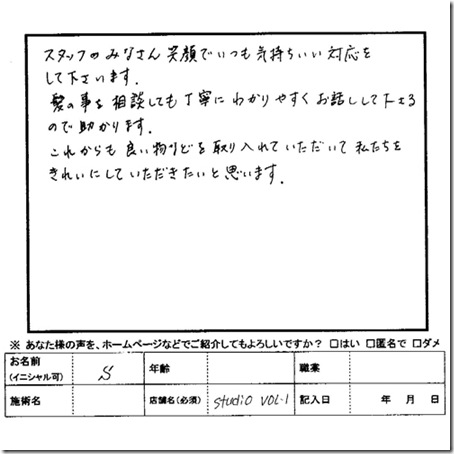 スタッフのみなさん笑顔でいつも気持ちいい対応を
して下さいます.
髪の事を相談しても丁寧にわかりやすくお話しして下さる
ので助かります.
これからも良い物などを取り入れていただいて私たちを
きれいにしていただきたいと思います.
※ あなた様の声を、ホームページなどでご紹介してもよろしいですか? □はい □匿名で □ダメ
お名前 (イニシャル可) S 年齢 職業
施術名 店舗名(必須) studio VOL-1 記入日 年 月 日